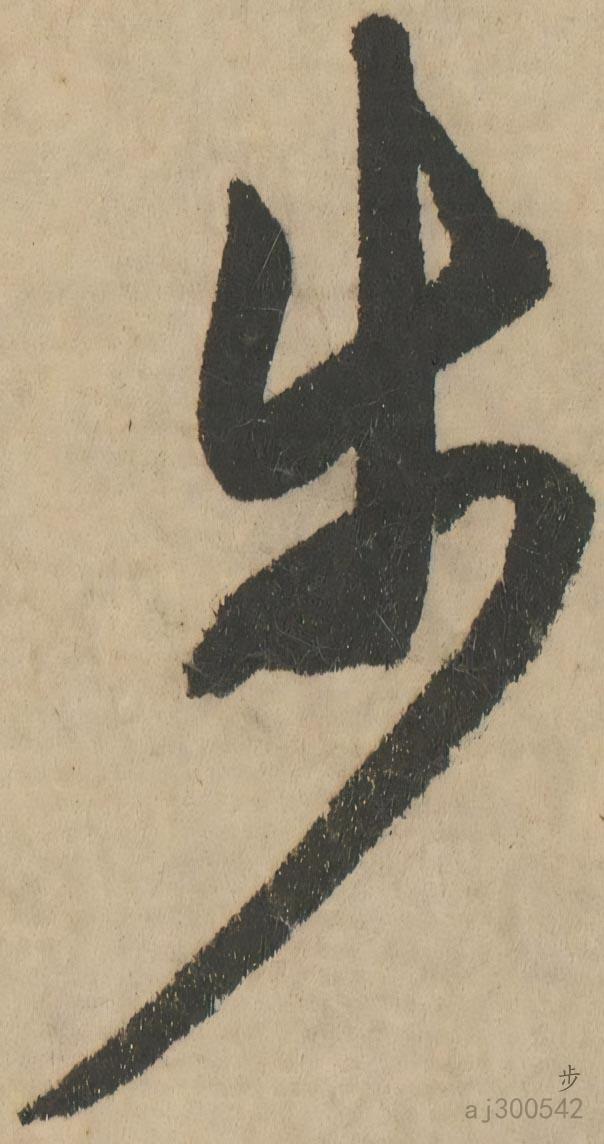 步
步
aj300542